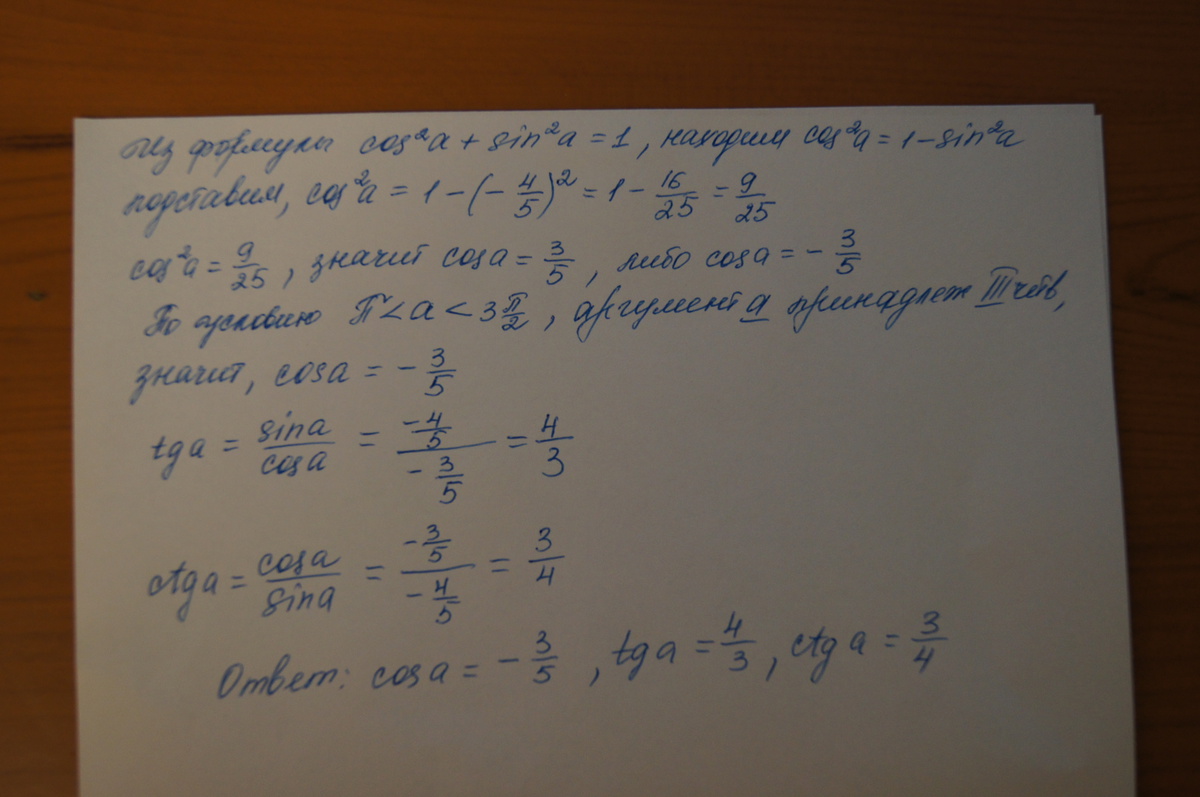 Из формулы cos²a + sin²a = 1, находим cos²a = 1 - sin²a
подставим, cos²a = 1 - (- 4/5)² = 1 - 16/25 = 9/25
cos²a = 9/25, значит cosa = 3/5, либо cosa = - 3/5
По условию П < a < 3 π/2, аргумент a принадлеж III четв,
значит, cosa = - 3/5
tga = sina/cosa = (-4/5)/(- 3/5) = 4/3
ctga = cosa/sina = (-3/5)/(- 4/5) = 3/4
Ответ: cosa = - 3/5, tga = 4/3, ctga = 3/4